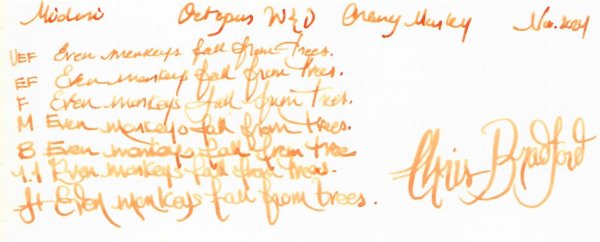 Midori Octopus W&D Orange Monkey Nov. 2024
UEF Even monkeys fall from trees.
EF Even monkeys fall from trees.
F Even monkeys fall from trees.
M Even monkeys fall from trees.
B Even monkeys fall from tree
1.1 Even monkeys fall from trees.
Even monkeys fall from trees.
Chris Bradford